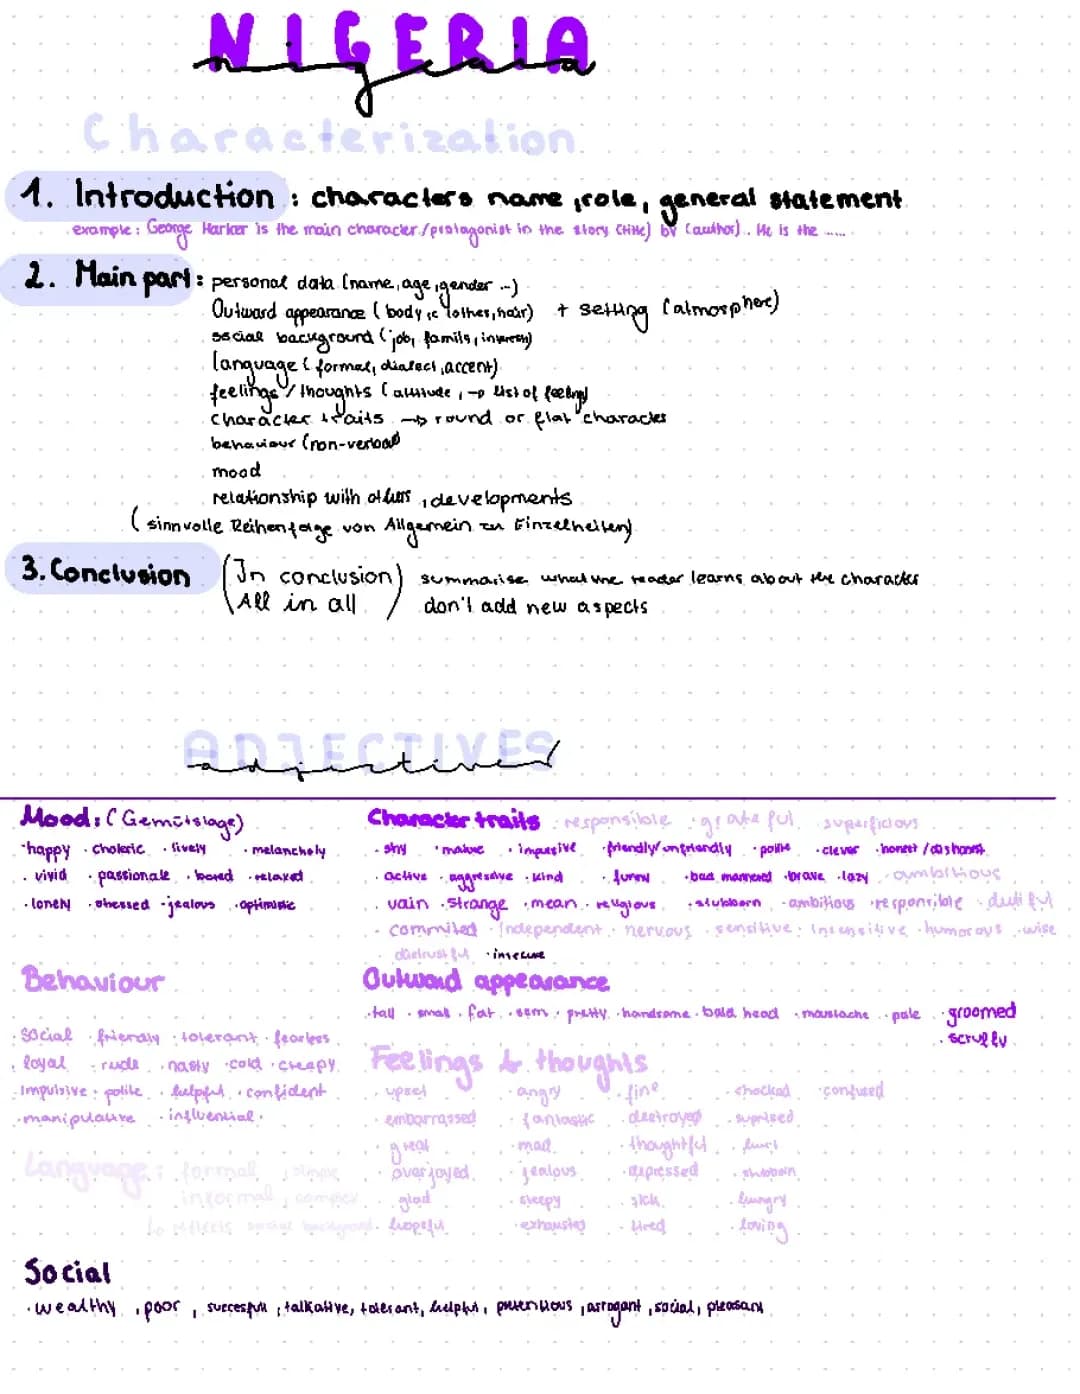 NIGERIA
nigeria
Characterization
1. Introduction : characters name, role, general statement
example: George Harker is the main character/protagonist in the story (title) by (author). He is the .....
2. Main part: personal data (name, age, gender ...)
Outward appearance (body, clothes, hair) + setting (atmosphere)
social background (job, family, interests)
language (formal, dialect, accent)
feelings / thoughts (attitude, → list of feelings)
character traits → round or flat character
behaviour (non-verbal)
mood
relationship with others, developments
(sinnvolle Reihenfolge von Allgemein zu Einzelheiten)
3. Conclusion (In conclusion) summarise what the reader learns about the character
(All in all) don't add new aspects
ADJECTIVES
adjectives
Mood: (Gemütslage)
· happy · choleric · lively · melancholy
· vivid · passionate · bored · relaxed
· lonely · obsessed · jealous · optimistic
Character traits · responsible · grateful superficious
· shy · mature · impulsive · friendly/unfriendly · polite · clever · honest / dishonest
· active · aggresive · kind · funny · bad mannered · brave · lazy · ambitious
· vain · strange · mean · religious · stubborn · ambitious · responsible · dutiful
· commited · Independent · nervous · sensitive · Insensitive · humorous · wise
distrustful · insecure
Behaviour
· social · friendly · tolerant · fearless
· loyal · rude · nasty · cold · creepy
· Impulsive · polite · helpful · confident
· manipulative · influential ·
Outward appearance
· tall · small · fat · slim · pretty · handsome · bald head · moustache · pale · groomed
· scruffy
Feelings & thoughts
· upset · angry · fine · shocked · confused
· embarrassed · fantastic · destroyed · suprised
· great · mad · thoughtful · hurt
· overjoyed · jealous · depressed · stubborn
· glad · sleepy · sick · hungry
· hopeful · exhausted · tired · loving
Language: formal, simple
informal, complex
↳ reflects social background
Social
· wealthy, poor, succesfull, talkative, tolerant, helpful, pretentious, arrogant, social, pleasant